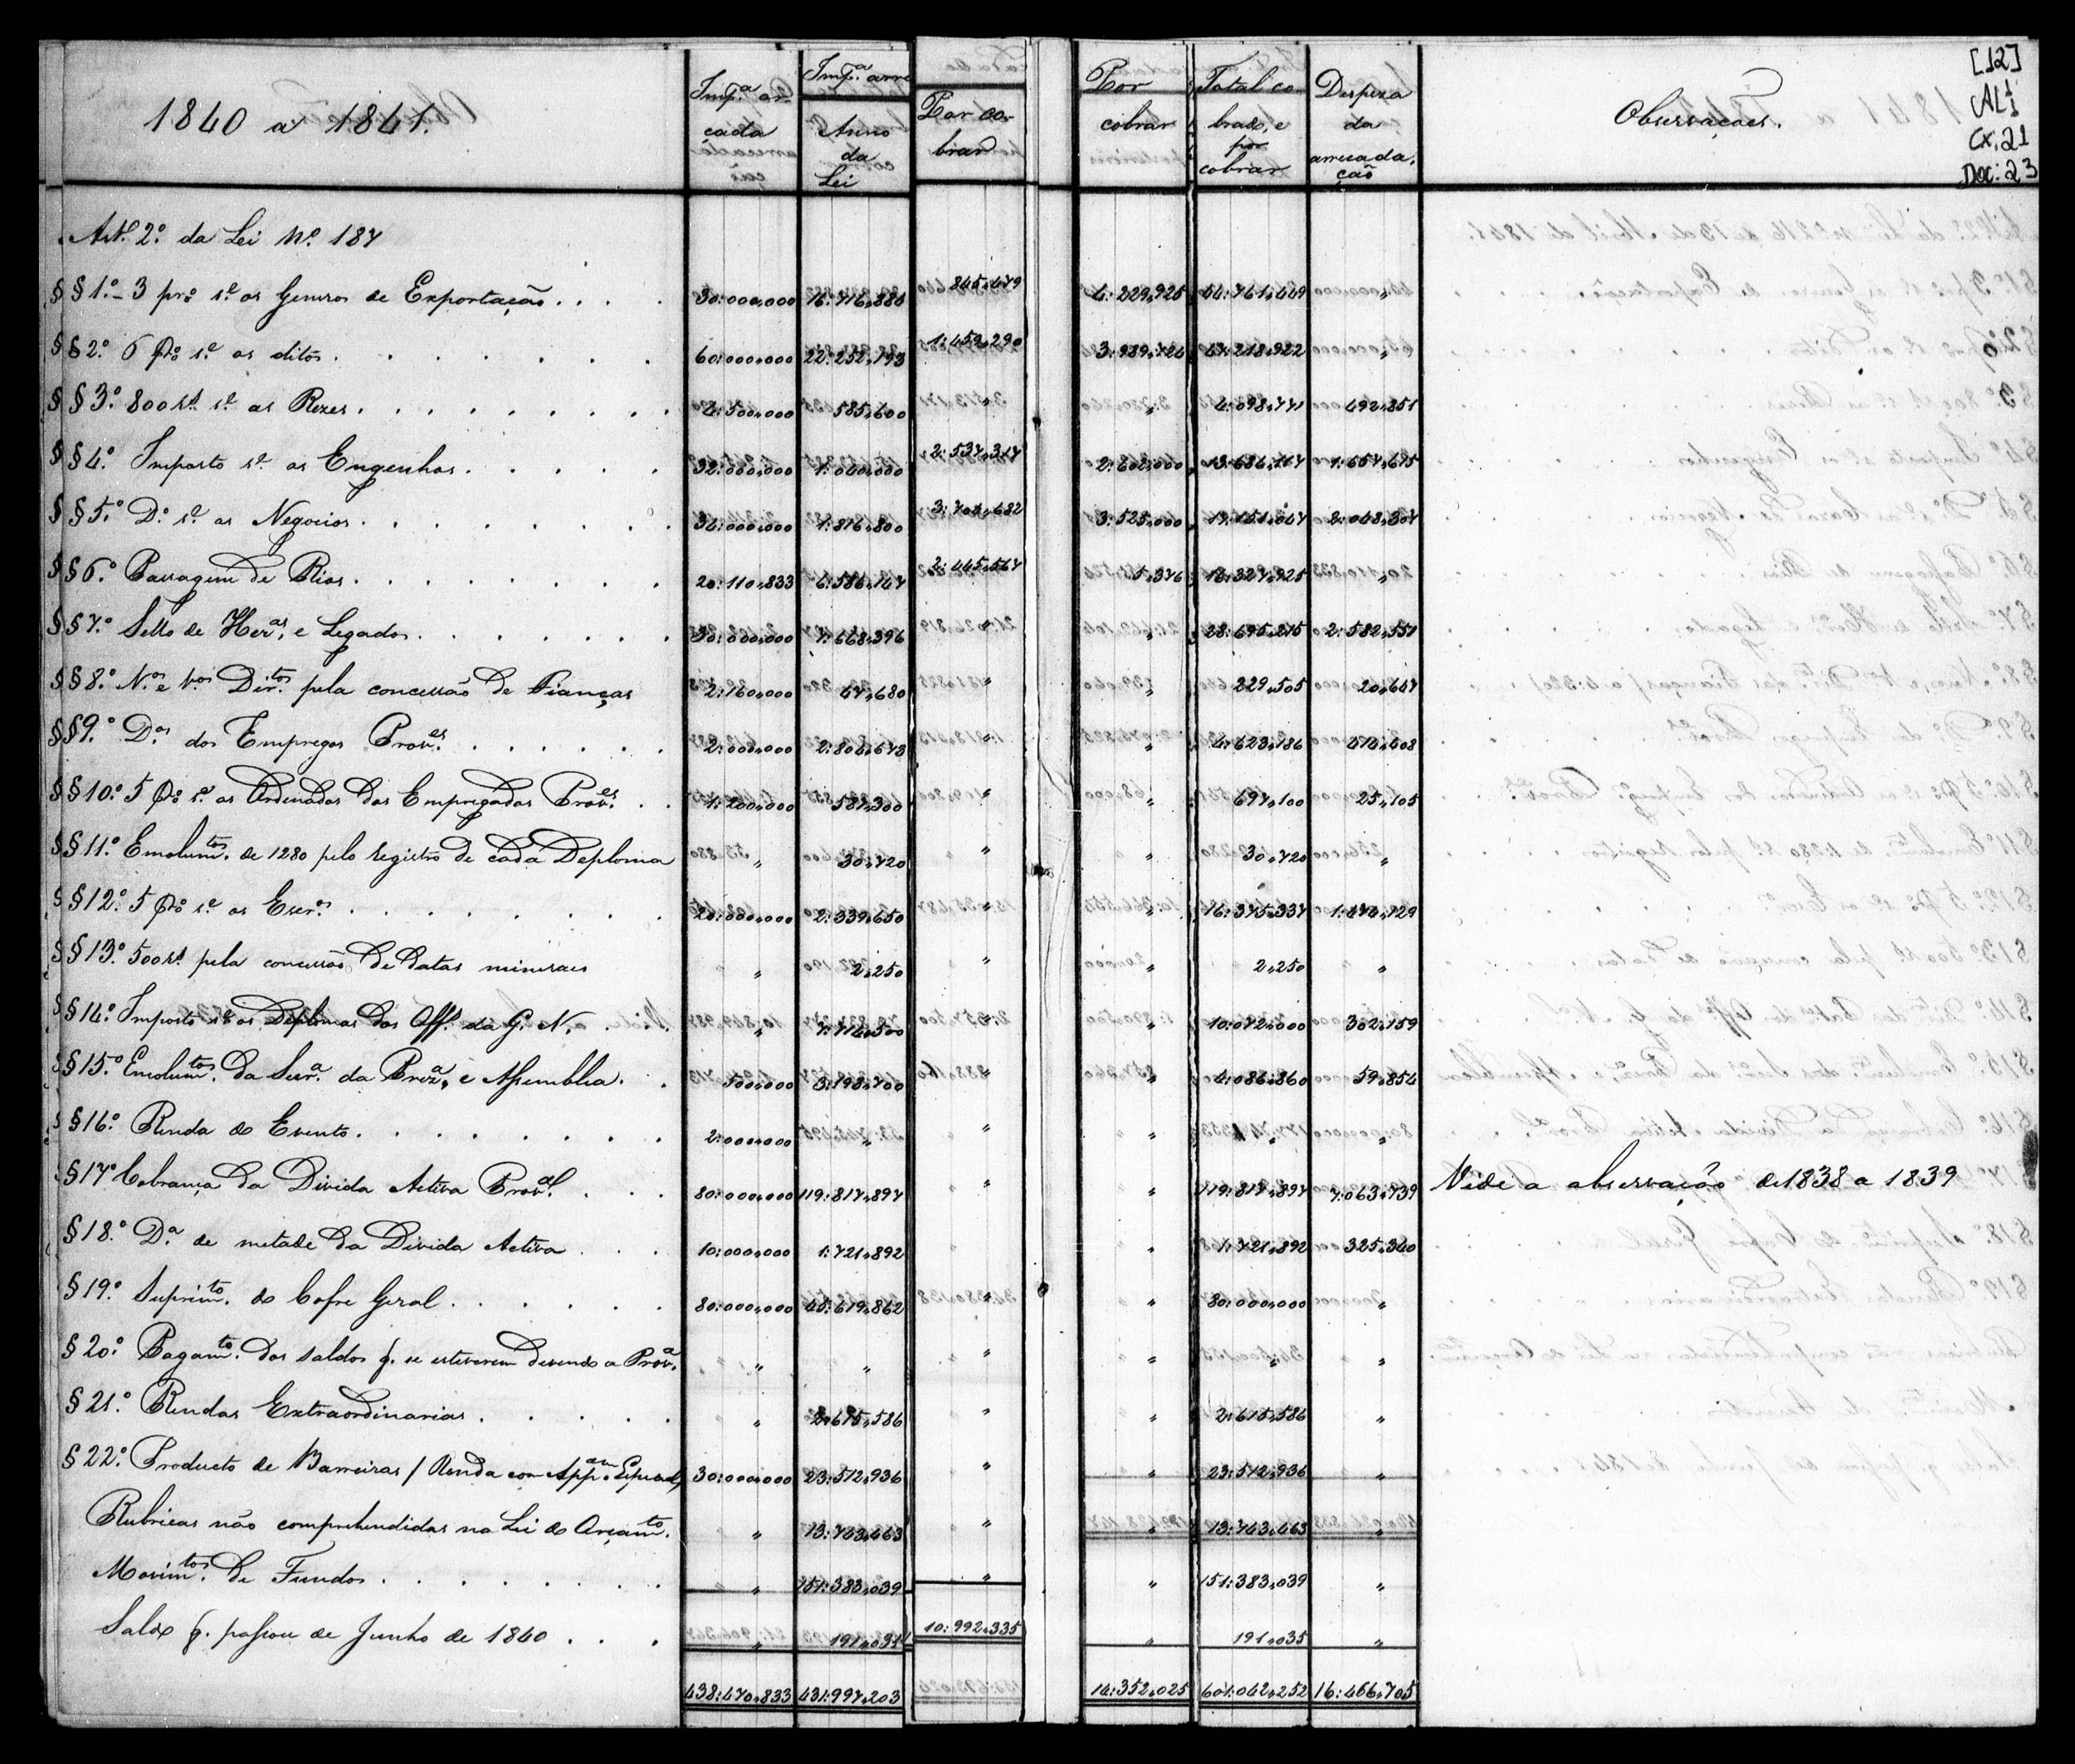 1840 a 1841.
Imp.ª ar-
çada
Imp.ª arre
Anno
da
Lei
Por co-
brar
Por
cobrar
Total co
brado, e
por
cobrar
Despeza
da
arrecada,
ção
Observaçoes.
[12]
AL 1
1
Cx. 21
Doc: 23
Art.º 2.º da Lei N.º 187
§§ 1.º - 3 p.r% s.e os Generos de Exportação . . . . 30:000,000 16:716,880 845,479 4:229,925 64:761,449 "
§§ 2.º 6 p% s.e os ditos . . . . . . . 60:000,000 22:252,193 1:453,290 3:989,724 67:218,922 "
§§ 3.º 800 r.s s.e as Rezes . . . . . . . . 4:500,000 585,600 " " 4:098,771 492,851
§§ 4.º Imposto s.e os Engenhos . . . . . 32:000,000 1:040,000 2:537,317 2:602,000 13:686,767 1:657,615
§§ 5.º D.º s.e as Negocios . . . . . . . . 34:000,000 1:816,800 3:701,682 3:525,000 17:151,047 2:048,307
§§ 6.º Passagem de Rios . . . . . . . . 20:110,833 6:586,147 2:445,567 5,376 18:327,925 "
§§ 7.º Sello de Her.as, e Legados . . . . . . . 30:000,000 7:668,396 " " 28:695,215 2:582,551
§§ 8.º N.os e V.os Dir.tos pela concessão de Fianças 2:160,000 67,680 " " 229,505 20,647
§§ 9.º D.os dos Empregos Prov.es . . . . . . 2:000,000 2:804,673 " " 4:623,186 474,408
§§ 10.º 5 p% s.e os Ordenados dos Empregados Prov.es . . 1:200,000 587,300 " " 697,100 25,105
§§ 11.º Emolum.tos de 1280 pelo registro de cada Deploma " 30,720 " " 30,720 "
§§ 12.º 5 p% s.e os Escr.os . . . . . . . . 20:000,000 2:339,650 " " 16:375,337 1:474,129
§§ 13.º 500 r.s pela concessão de datas mineraes " 2,250 " " 2,250 "
§§ 14.º Imposto s.e os Deplomas dos Off.s da G. N. . " 7:716,500 " " 10:072,000 302,159
§§ 15.º Emolum.tos da Secr.ª da Prez.ª, e Assemblea . . 500,000 3:198,700 " " 4:086,860 59,854
§ 16.º Renda do Evento . . . . . . . . 2:000,000 " " " " "
§ 17.º Cobrança da Divida Activa Prov.al . . . 80:000,000 119:817,897 " " 119:817,897 7:063,739 Vide a observação de 1838 a 1839
§ 18.º D.ª de metade da Divida Activa . . . 10:000,000 1:721,892 " 1:721,892 325,340
§ 19.º Suprim.to do Cofre Geral . . . . . . 80:000,000 45:619,862 " " 80:000,000 "
§ 20.º Pagam.to dos saldos q. se estiverem devendo a Prov.ª " " " " " "
§ 21.º Rendas Extraordinarias . . . . . " 2:615,586 " " 2:615,586 "
§ 22.º Producto de Barreiras / Renda com App.am Especial 30:000,000 23:512,936 " " 23:512,936 "
Rubricas não comprehendidas na Lei do Orçam.to. " 13:743,463 " " 13:743,463 "
Movim.tos de Fundos . . . . . . . . " 151:383,039 " " 151:383,039 "
Saldo q. passou de Junho de 1840 . . . " 191,035 10:992,335 " 191,035 "
438:470,833 431:997,203 14:352,025 601:042,252 16:466,705